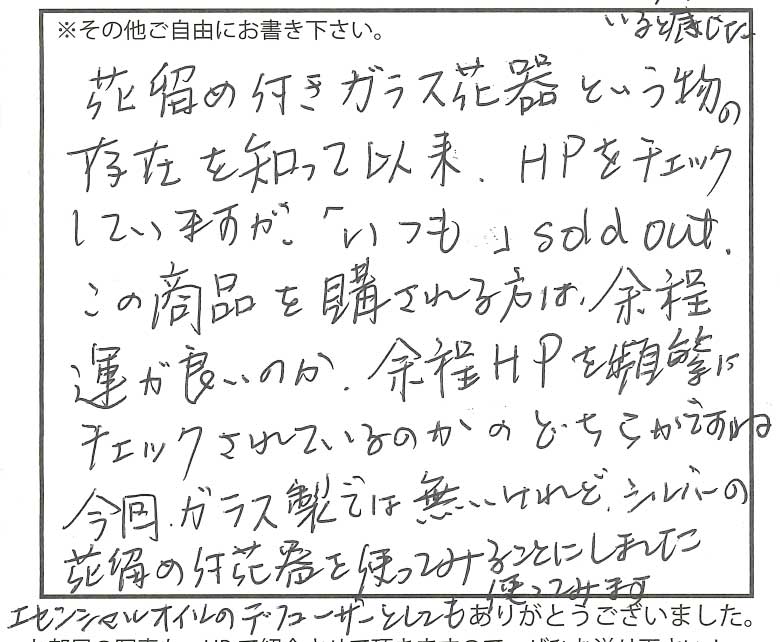 いると感じた
※その他ご自由にお書き下さい。
花留め付きガラス花器という物の
存在を知って以来、HPをチェック
していますが、「いつも」sold out.
この商品を購される方は、余程
運が良いのか、余程HPを頻繁に
チェックされているのかのどちらかですね
今回、ガラス製では無いけれど、シルバーの
花留め付花器を使ってみることにしました
使ってみます
エセンシャルオイルのデフューザーとしても
ありがとうございました。